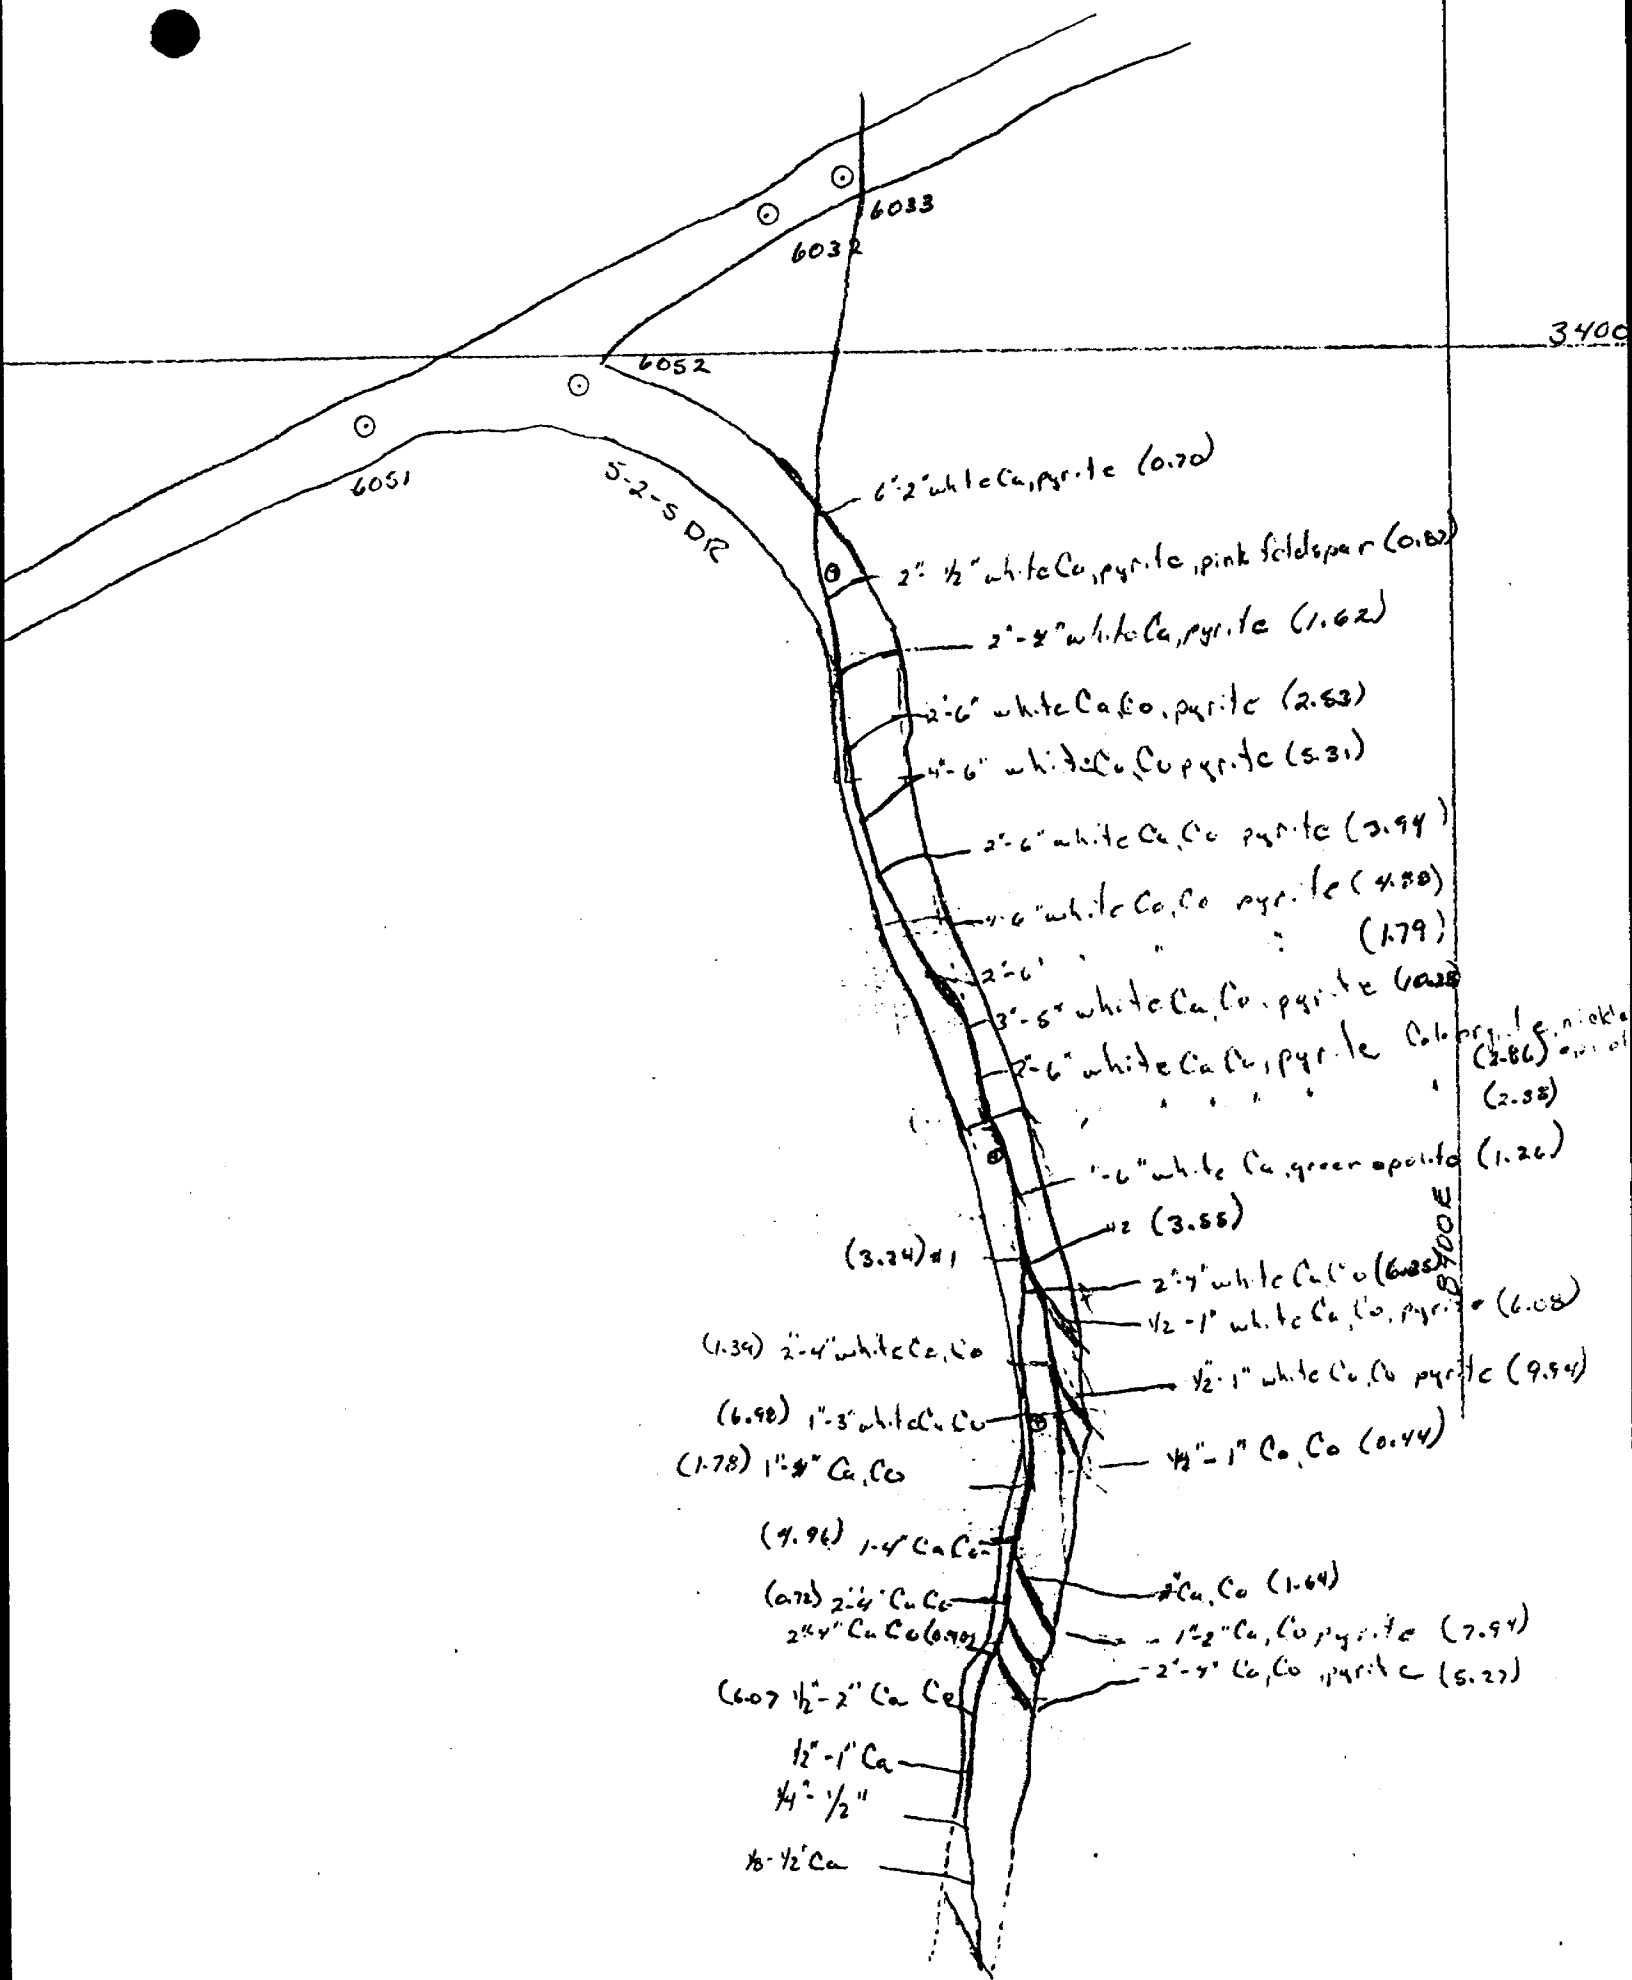 6033
6032
3400
6052
6051
5-2-5 DR
6"-2" white Ca, pyrite (0.70)
2"-1/2" white Ca, pyrite, pink feldspar
2"- " white Ca, pyrite (1.62)
2"-6" white Ca, Co, pyrite (2.53)
4"-6" white Ca, Co pyrite (5.31)
2"-6" white Ca, Co pyrite (3.94)
white Ca, Co pyrite
2"-6" " " (1.79)
3"-5" white Ca, Co, pyrite
2"-6" white Ca Co, pyrite
(2.86)
(2.38)
white Ca, green (1.26)
#2 (3.55)
(3.24) #1
8400E
2"-4" white Ca Co
1/2-1" white Ca, Co, pyrite (6.08)
(1.39) 2"-4" white Ca, Co
1/2"-1" white Ca, Co pyrite (9.54)
(6.98) 1"-3" white Ca Co
1/2"-1" Ca, Co (0.44)
(1.78) 1"- " Ca, Co
(4.96) 1-4" Ca Co
Ca, Co (1.64)
(0.72) 2"-4" Ca Co
2"-4" Ca Co (0.90)
1"-2" Ca, Co pyrite (7.94)
2"-4" Ca, Co, pyrite (5.27)
(6.07 1/2"-2" Ca Co
1/2"-1" Ca
1/4"-1/2"
1/8-1/2" Ca